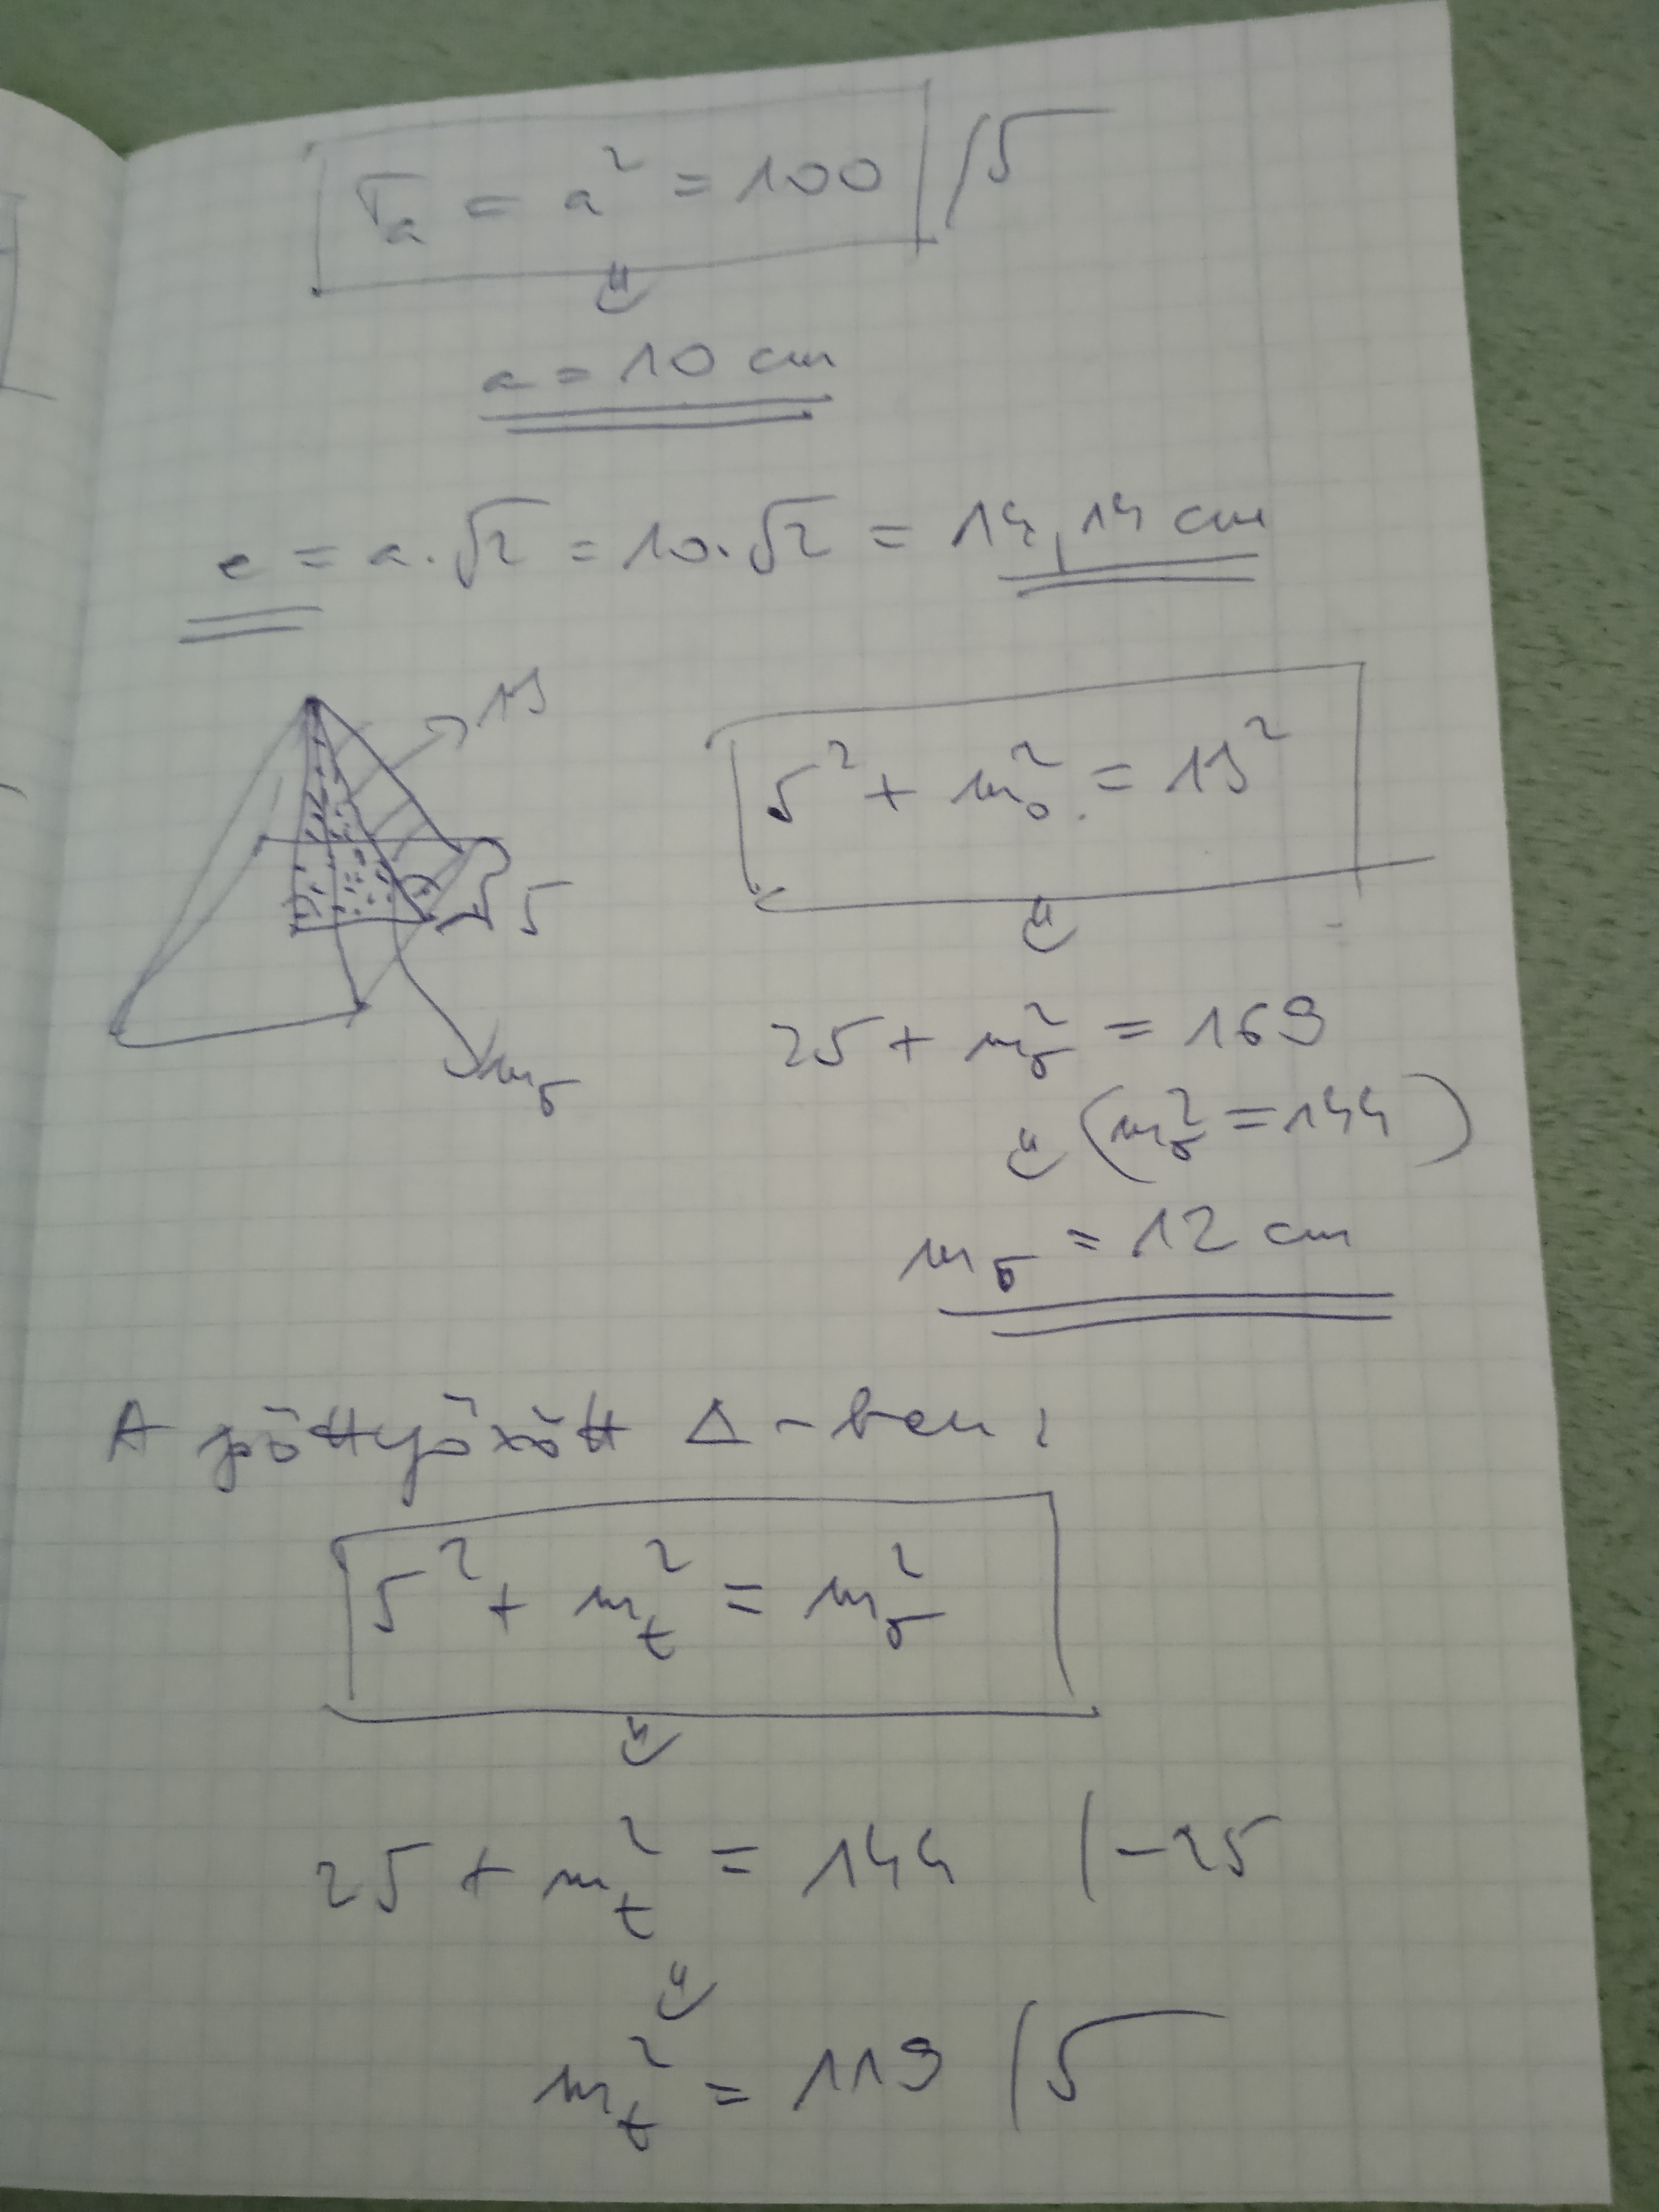 Ta = a² = 100 /√
a = 10 cm
e = a·√2 = 10·√2 = 14,14 cm
13
5² + m₀² = 13²
5
25 + m₀² = 169
m₀
(m₀² = 144)
m₀ = 12 cm
A pöttyözött Δ-ben:
5² + mₜ² = m₀²
25 + mₜ² = 144 /-25
mₜ² = 119 /√